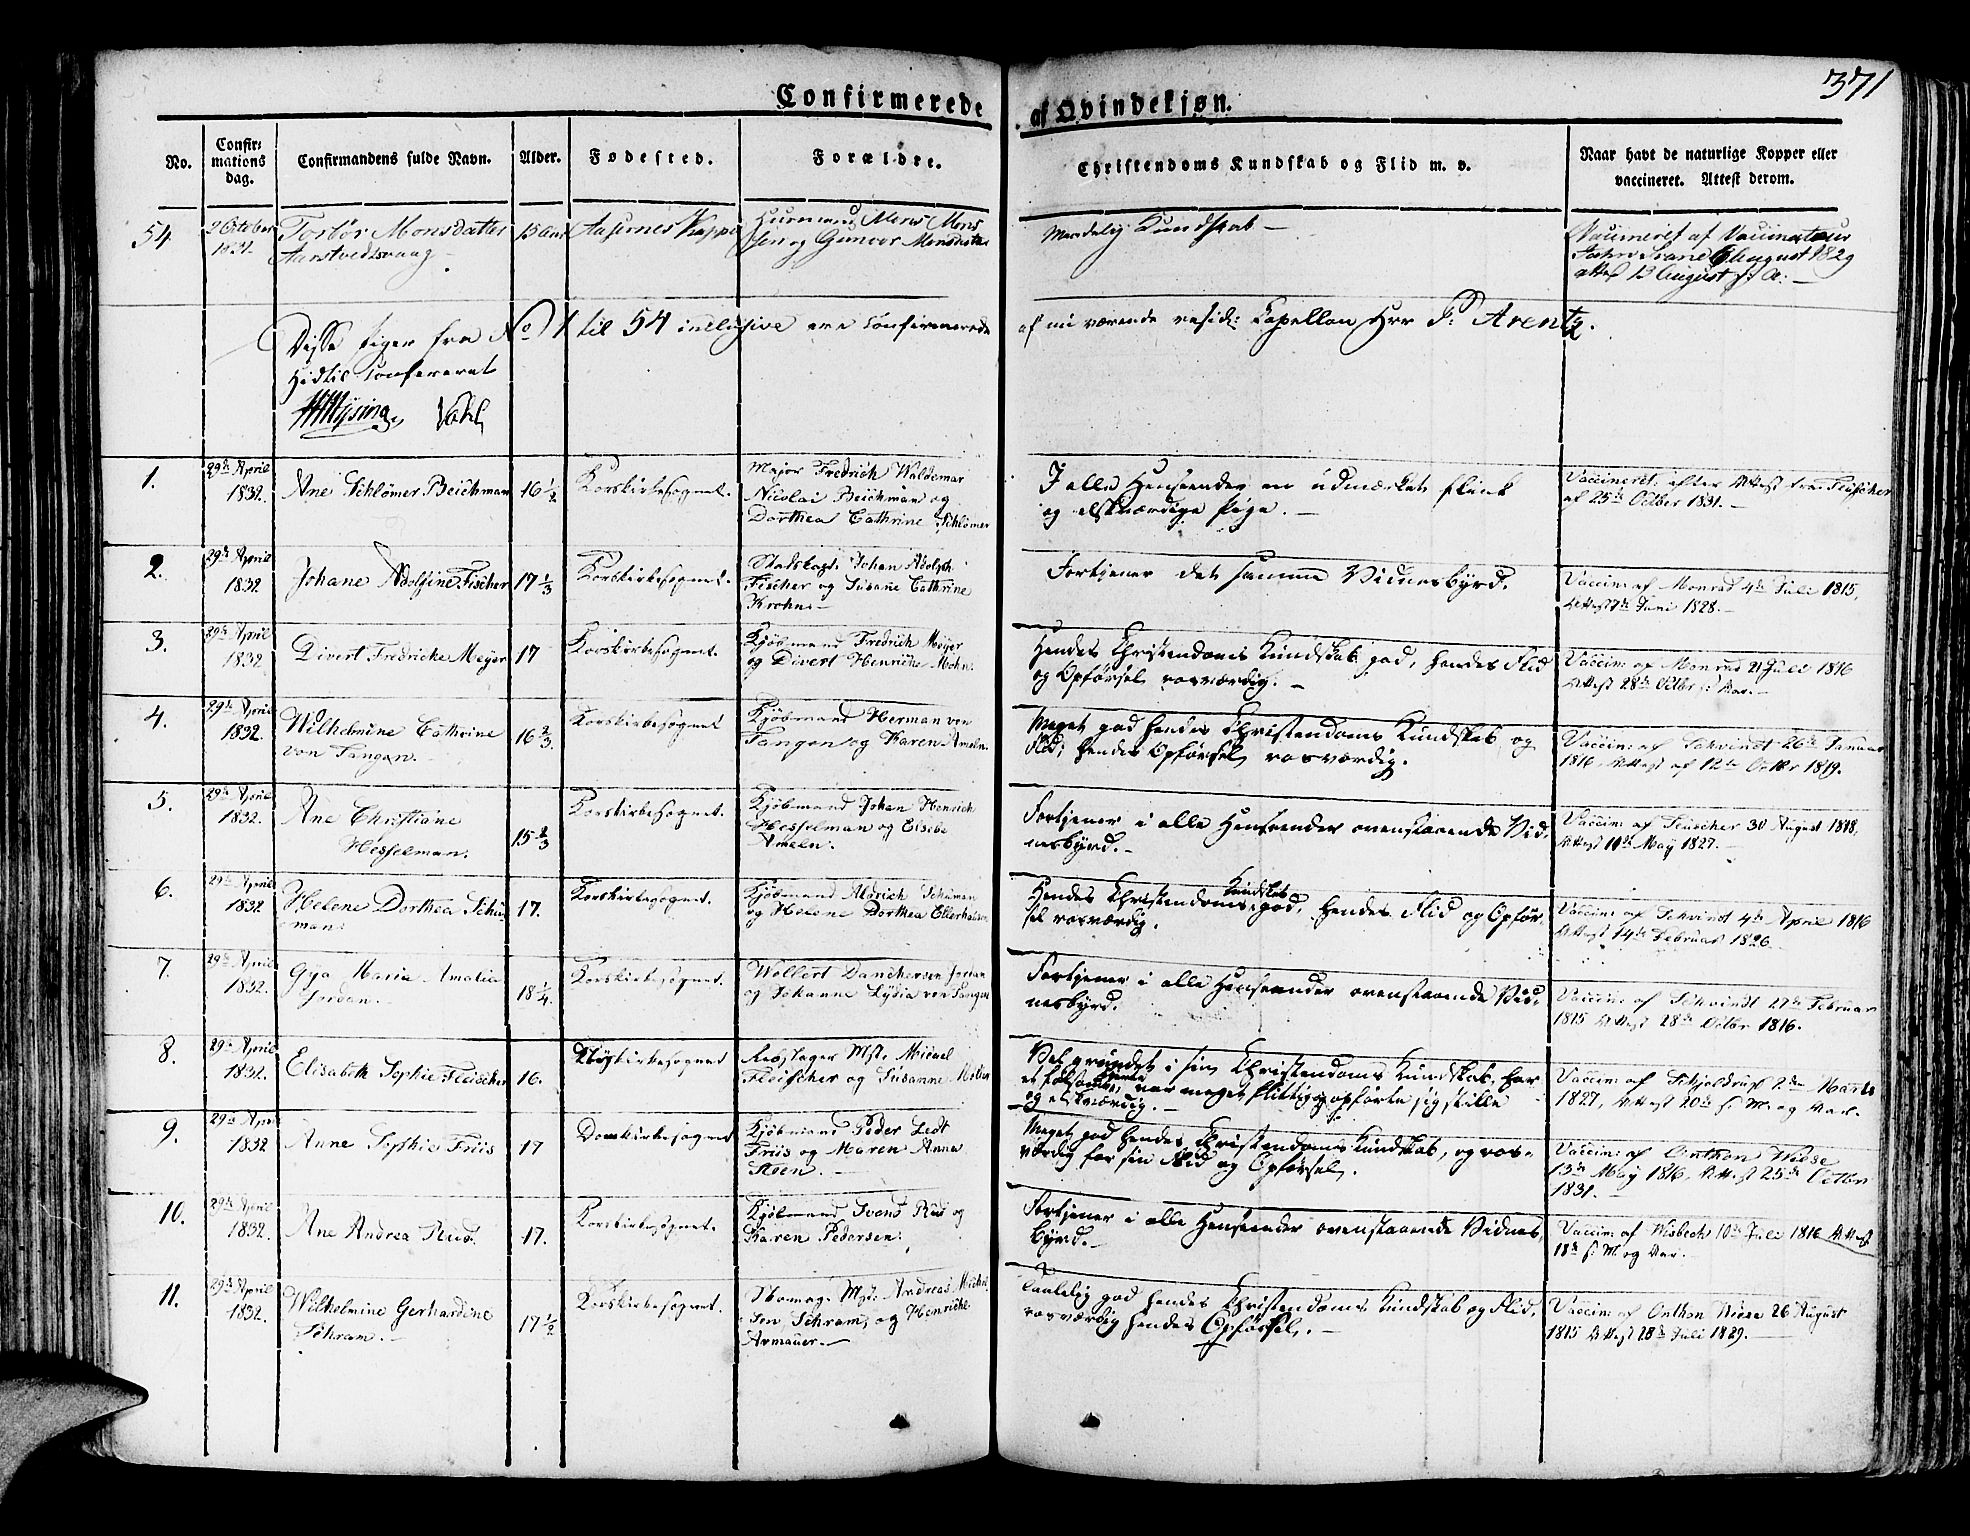 371
Confirmerede
af Qvindekjøn.
No.
Confir-
mations
dag.
Confirmandens fulde Navn.
Alder.
Fødested.
Forældre.
Christendoms Kundskab og Flid m. v.
Naar havt de naturlige Kopper eller
vaccineret. Attest derom.
54
2 October
1831.
Torbør Monsdatter
Aarstvedtsvaag
Huusmand Mons Mons
sen og Gunver Monsdatter
Maadelig Kundskab
Vaccineret af Vaccinateur
August 1829
Attest 13 August s: A:
Disse Piger fra No 1 til 54 inclusive ere confirmerede
af nu værende resid: Capellan Hrr P: Arentz.
Hidtil Confereret
Vahl
1.
29de April
1832.
Ane Schlömer Beichman
16 1/2
Korskirkesognet.
Major Fredrich Waldemar
Nicolai Beichman og
Dorthea Cathrine Schlömer
I alle Henseender en udmærket flink
og elskværdig Pige.
Vaccineret efter Attest fra Fleischer
af 25de Octber 1831.
2.
29de April
1832
Johane Adolfine Fischer
17 1/3
Korskirkesognet.
Stadskapt. Johan Adolph
Fischer og Susane Cathrine
Krohn.
Fortjener det samme Vidnesbyrd.
Vaccin: af Monrad 4de Juli 1815,
Attest 7de Juni 1828.
3.
29de April
1832
Divert Fredricke Meyer
17
Korskirkesognet.
Kjøbmand Fredrich Meyer
og Divert Henriche Mohn.
Hendes Christendoms Kundskab god, hendes Flid
og Opførsel rosværdig.
Vaccin: af Monrad 21 Juli 1816
Attest 28de Octbr s: Aar.
4.
29de April
1832.
Wilhelmine Cathrine
von Tangen.
16 2/3
Korskirkesognet
Kjøbmand Herman von
Tangen og Karen Ameln.
Meget god hendes Christendoms Kundskab og
Flid; hendes Opførsel rosværdig.
Vaccin: af Schvindt 26de Januar
1816, Attest af 12te Octbr 1819.
5.
29de April
1832.
Ane Christiane
Hesselman.
15 2/3
Korskirkesognet.
Kjøbmand Johan Henrich
Hesselman og Elsebe
Ameln.
Fortjener i alle Henseender ovenstaaende Vid-
nesbyrd.
Vaccin: af Fleischer 30 August 1818,
Attest 10de May 1827.
6.
29de April
1832
Helene Dorthea Schu-
man.
17.
Korskirkesognet.
Kjøbmand Aldrich Schuman
og Helene Dorthea Ellerhusen
Hendes Christendoms Kundskab god, hendes Flid og Opfør-
sel rosværdig.
Vaccin: af Schvindt 4de April 1816
Attest 14de Februar 1826.
7.
29de April
1832.
Gya Maria Amalia
Jordan.
18 1/4.
Korskirkesognet.
Wollert Danchertsen Jordan
og Johanne Lydia von Tangen
Fortjener i alle Henseender ovenstaaende Vid-
nesbyrd.
Vaccin: af Schvindt 27de Februar
1815 Attest 28de Octbr 1816.
8.
29de April
1832.
Elisabeth Sophie Fleischer
16.
Nykirkesognet
Rebslager Mst. Michael
Fleischer og Susanne
Vel grundet i sin Christendoms Kundskab, har
var meget flittig og opførte sig stille
og elskværdig.
Vaccin: af Schjeldrup 2den Marts
1827, Attest 20de s: M: og Aar.
9.
29de April
1832
Anne Sophie Friis
17
Domkirkesognet
Kjøbmand Peder Ledt
Friis og Maren Anna
Steen.
Meget god hendes Christendoms Kundskab, og ros-
værdig for sin Flid og Opførsel.
Vaccin: af Anthon Wiese
13de May 1816, Attest 25de Octbr
1831.
10.
29de April
1832.
Ane Andrea Ruus.
17.
Korskirkesognet.
Kjøbmand Svend Ruus og
Karen Pedersen.
Fortjener i alle Henseender ovenstaaende Vidnes-
byrd.
Vaccin: af Wisbech 10de Juli 1816 Attest
18de s: M og Aar.
11.
29de April
1832.
Wilhelmine Gerhardine
Schram.
17 1/2
Korskirkesognet.
Skomag. Mst. Andreas Michel-
sen Schram, og Henriche
Armauer.
Taalelig god hendes Christendoms Kundskab og Flid,
rosværdig hendes Opførsel.
Vaccin: af Anthon Wiese 26 August
1815 Attest 28de Juli 1829.